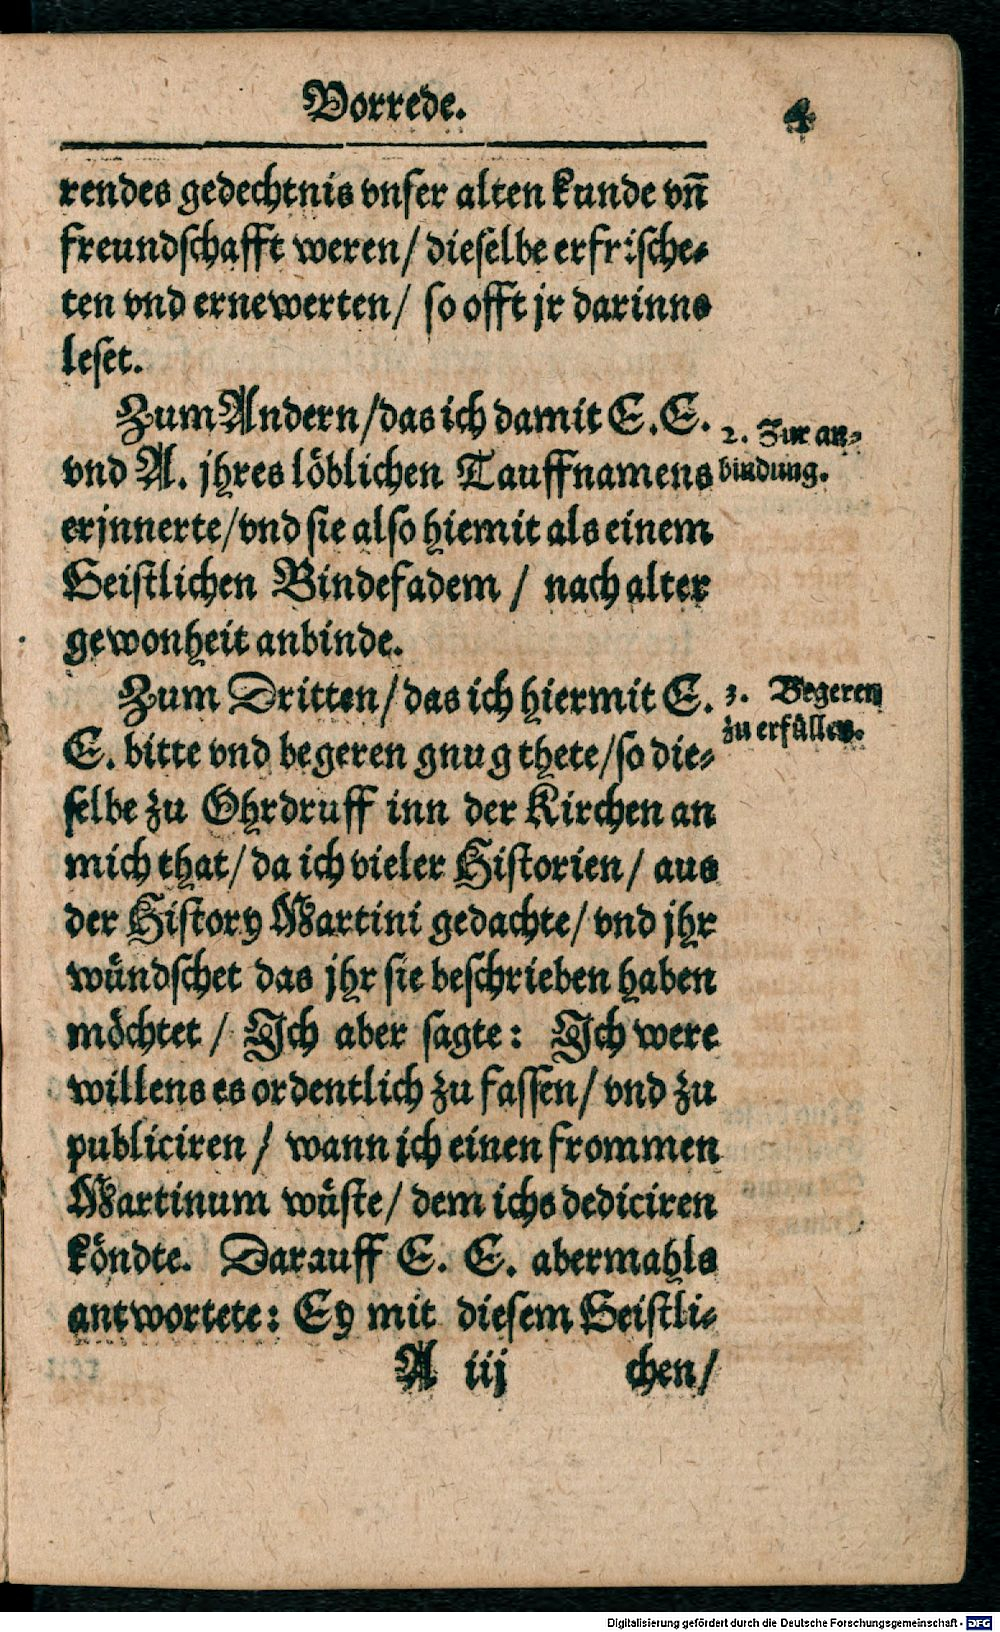 Vorrede. 4
rendes gedechtnis vnser alten kunde vn̄
freundschafft weren/ dieselbe erfrische-
ten vnd ernewerten/ so offt jr darinne
leset.
Zum Andern/das ich damit E.E.
2. Zur an-
bindung.
vnd A. jhres löblichen Tauffnamens
erjnnerte/vnd sie also hiemit als einem
Geistlichen Bindefadem / nach alter
gewonheit anbinde.
Zum Dritten/ das ich hiermit E.
3. Begeren
zu erfüllen.
E. bitte vnd begeren gnug thete/so die-
selbe zu Ohrdruff inn der Kirchen an
mich that/ da ich vieler Historien/ aus
der History Martini gedachte/ vnd jhr
wündschet das jhr sie beschrieben haben
möchtet / Ich aber sagte: Ich were
willens es ordentlich zu fassen/ vnd zu
publiciren / wann ich einen frommen
Martinum wüste/ dem ichs dediciren
köndte. Darauff E. E. abermahls
antwortete: Ey mit diesem Geistli-
A iij chen/
Digitalisierung gefördert durch die Deutsche Forschungsgemeinschaft - DFG